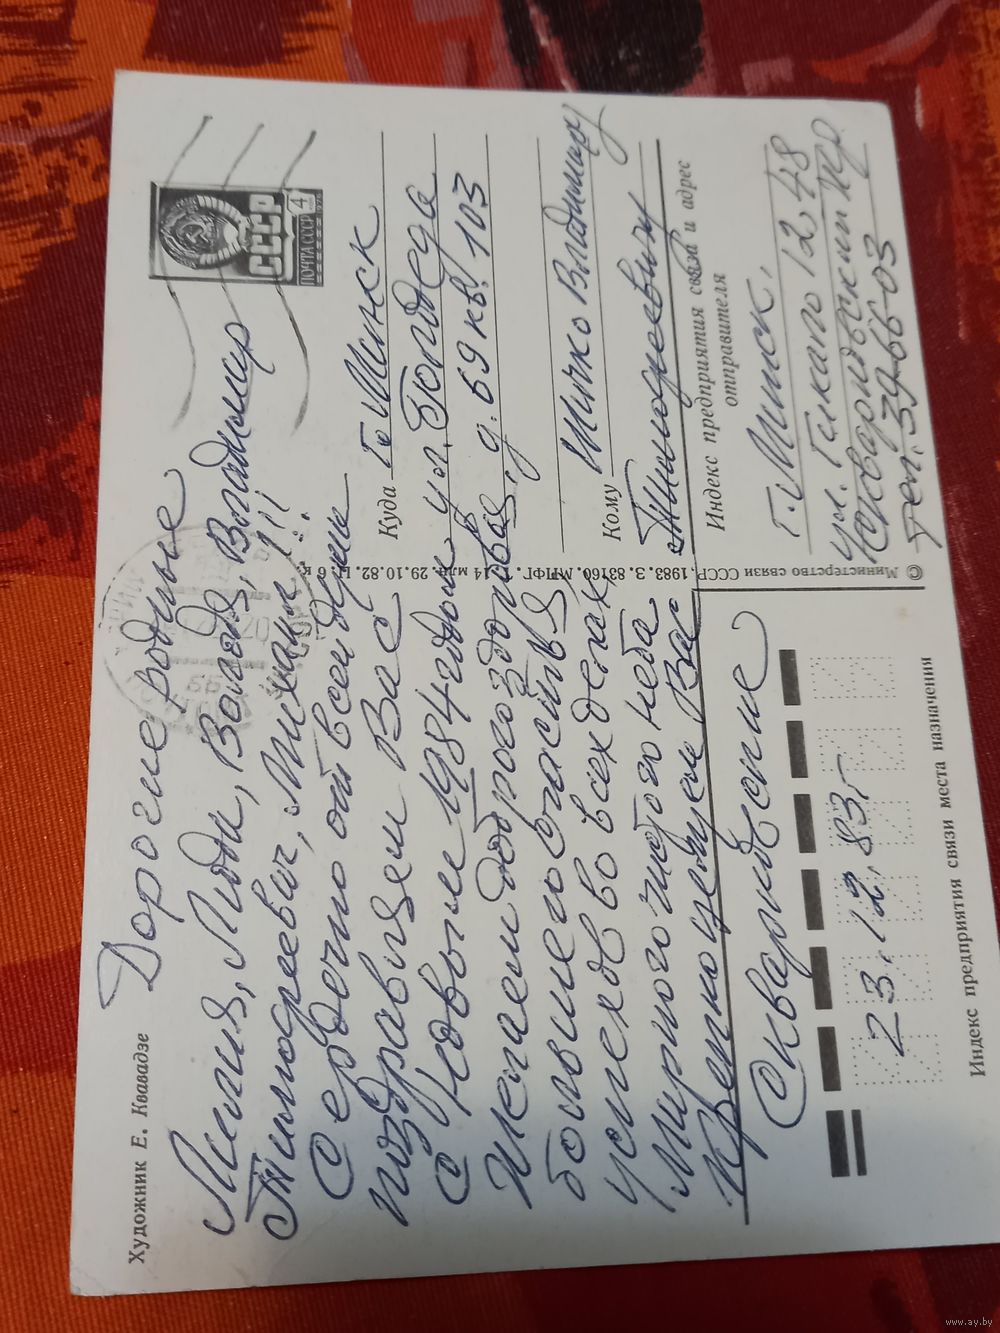 Художник Е. Квавадзе
Дорогие родные
Лилия, Лида, Володя, Владимир
Тимофеевич, Михаил!!!
Сердечно от всей души
поздравляем Вас
с Новым 1984 годом
Желаем доброго здоровья,
большого счастья
успехов во всех делах
Мирного чистого неба
Крепко целуем Вас
23.12.83г
Индекс предприятия связи места назначения
© Министерство связи СССР, 1983. З. 83160. МПФГ. 14 млн. 29.10.82. Ц. 6 к.
СССР
ПОЧТА СССР 4
Куда г. Минск
ул. Голодеда
д. 69 кв. 103
Кому Шичко Владимиру
Тимофеевичу
Индекс предприятия связи и адрес
отправителя
г. Минск,
ул. 12 48
тел. 39-66-03
www.ay.by